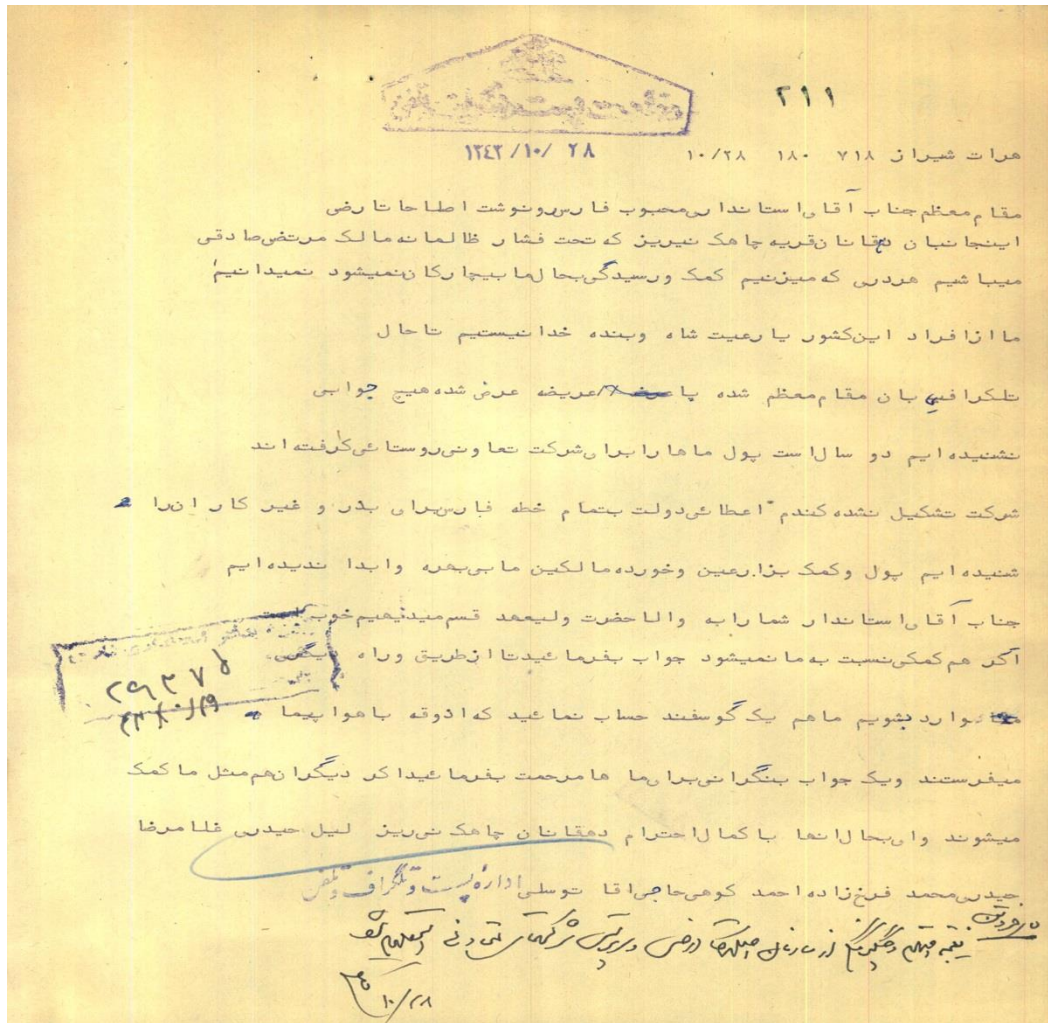 ۲۱۱
۱۳۴۳/۱۰/ ۲۸
هرات شیراز ۷۱۸ ۱۸۰ ۱۰/۲۸
مقام معظم جناب آقای استانداری محبوب فارس رونوشت اصلاحات ارضی
اینجانبان دهقانان قریه چاهک نیریز که تحت فشار ظالمانه مالک مرتضی صادقی
میباشیم هردری که میزنیم کمک ورسیدگی بحال ما بیچارکان نمیشود نمیدانیم
ما از افراد این کشور یا رعیت شاه وبنده خدا نیستیم تا حال
تلکرافی بان مقام معظم شده یا عریضه عرض شده هیچ جوابی
نشنیده ایم دو سال است پول ماها را برای شرکت تعاونی روستائی گرفته اند
شرکت تشکیل نشده کندم اعطائی دولت بتمام خطه فارس برای بذر و غیر کار انرا
شنیده ایم پول وکمک بزارعین وخورده مالکین ما بی بهره وابدا ندیده ایم
جناب آقای استاندار شما رابه والاحضرت ولیعهد قسم میدهیم خوب است
اکر هم کمکی نسبت به ما نمیشود جواب بفرمائید تا از طریق وراه دیگری
وارد بشویم ماهم یک گوسفند حساب نمائید که اذوقه با هواپیما
میفرستند ویک جواب بنگرانی برای ما ها مرحمت بفرمائید اکر دیگران هم مثل ما کمک
میشوند وای بحال انها با کمال احترام دهقانان چاهک نی ریز لیل حیدری غلامرضا
حیدری محمد فرخ زاده احمد کوهی حاجی اقا توسلی اداره پست و تلگراف و تلفن
۲۹۳۷۵
۴۳/۱۰/۲۹
۱۰/۲۸